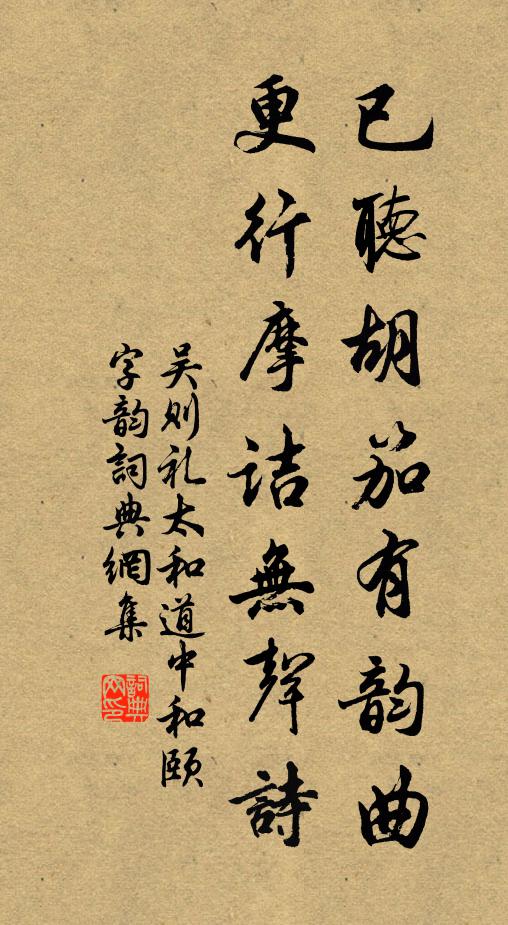 已聽胡笳有韵曲
更行摩詰無聲詩
吴则礼太和道中和頤
字韵詞典網集
詞典网印